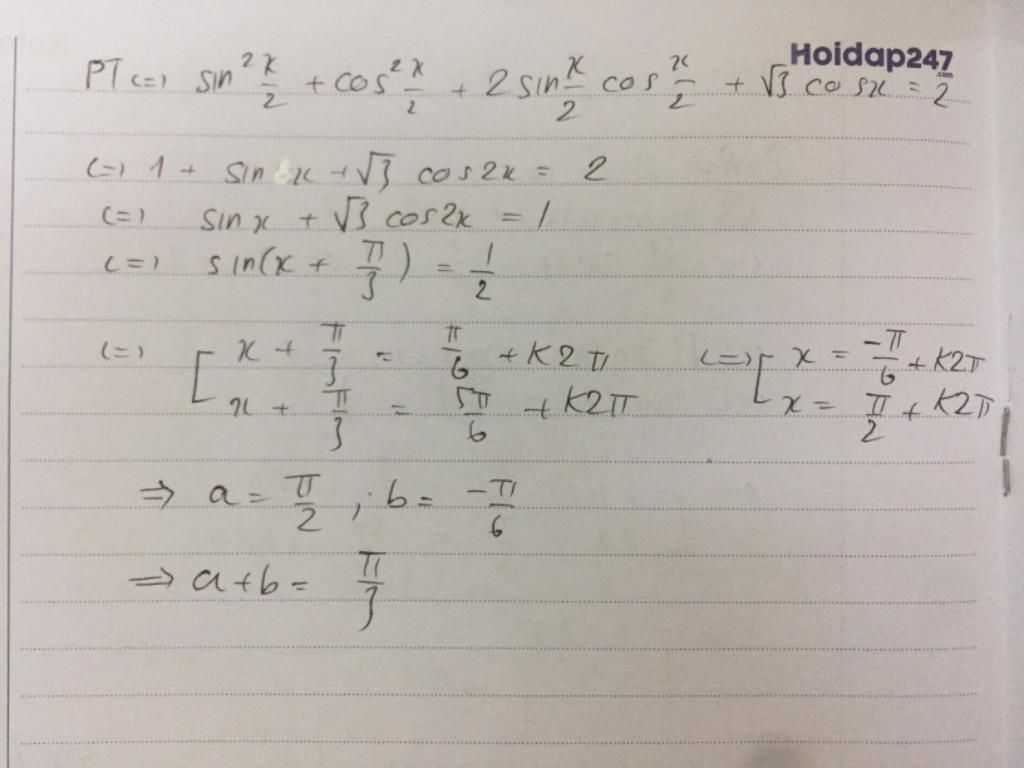 Hoidap247
.com
PT <=> sin²x/2 + cos²x/2 + 2 sin x/2 cos x/2 + √3 cosx = 2
<=> 1 + sin x + √3 cos2x = 2
<=> sinx + √3 cos2x = 1
<=> sin(x + π/3) = 1/2
<=> [ x + π/3 = π/6 + K2π <=> [ x = -π/6 + K2π
x + π/3 = 5π/6 + K2π x = π/2 + K2π
=> a = π/2 ; b = -π/6
=> a+b = π/3